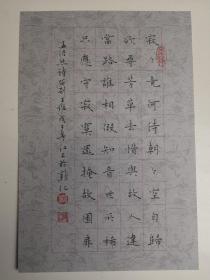 寂〻竟何待朝〻空自歸
欲尋芳草去惜與故人違
當路誰相假知音世所稀
只應守寂寞還掩故園扉
孟浩然詩留別王維